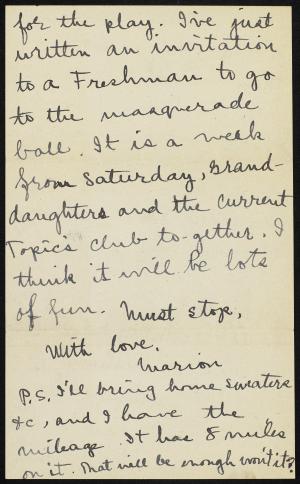 for the play. I've just
written an invitation
to a Freshman to go
to the masquerade
ball. It is a week
from Saturday, Grand-
daughters and the Current
Topics club to-gether. I
think it will be lots
of fun. Must stop,
With love,
Marion
P.S. I'll bring home sweaters
&c, and I have the
mileage. It has 8 miles
on it. That will be enough won't it?